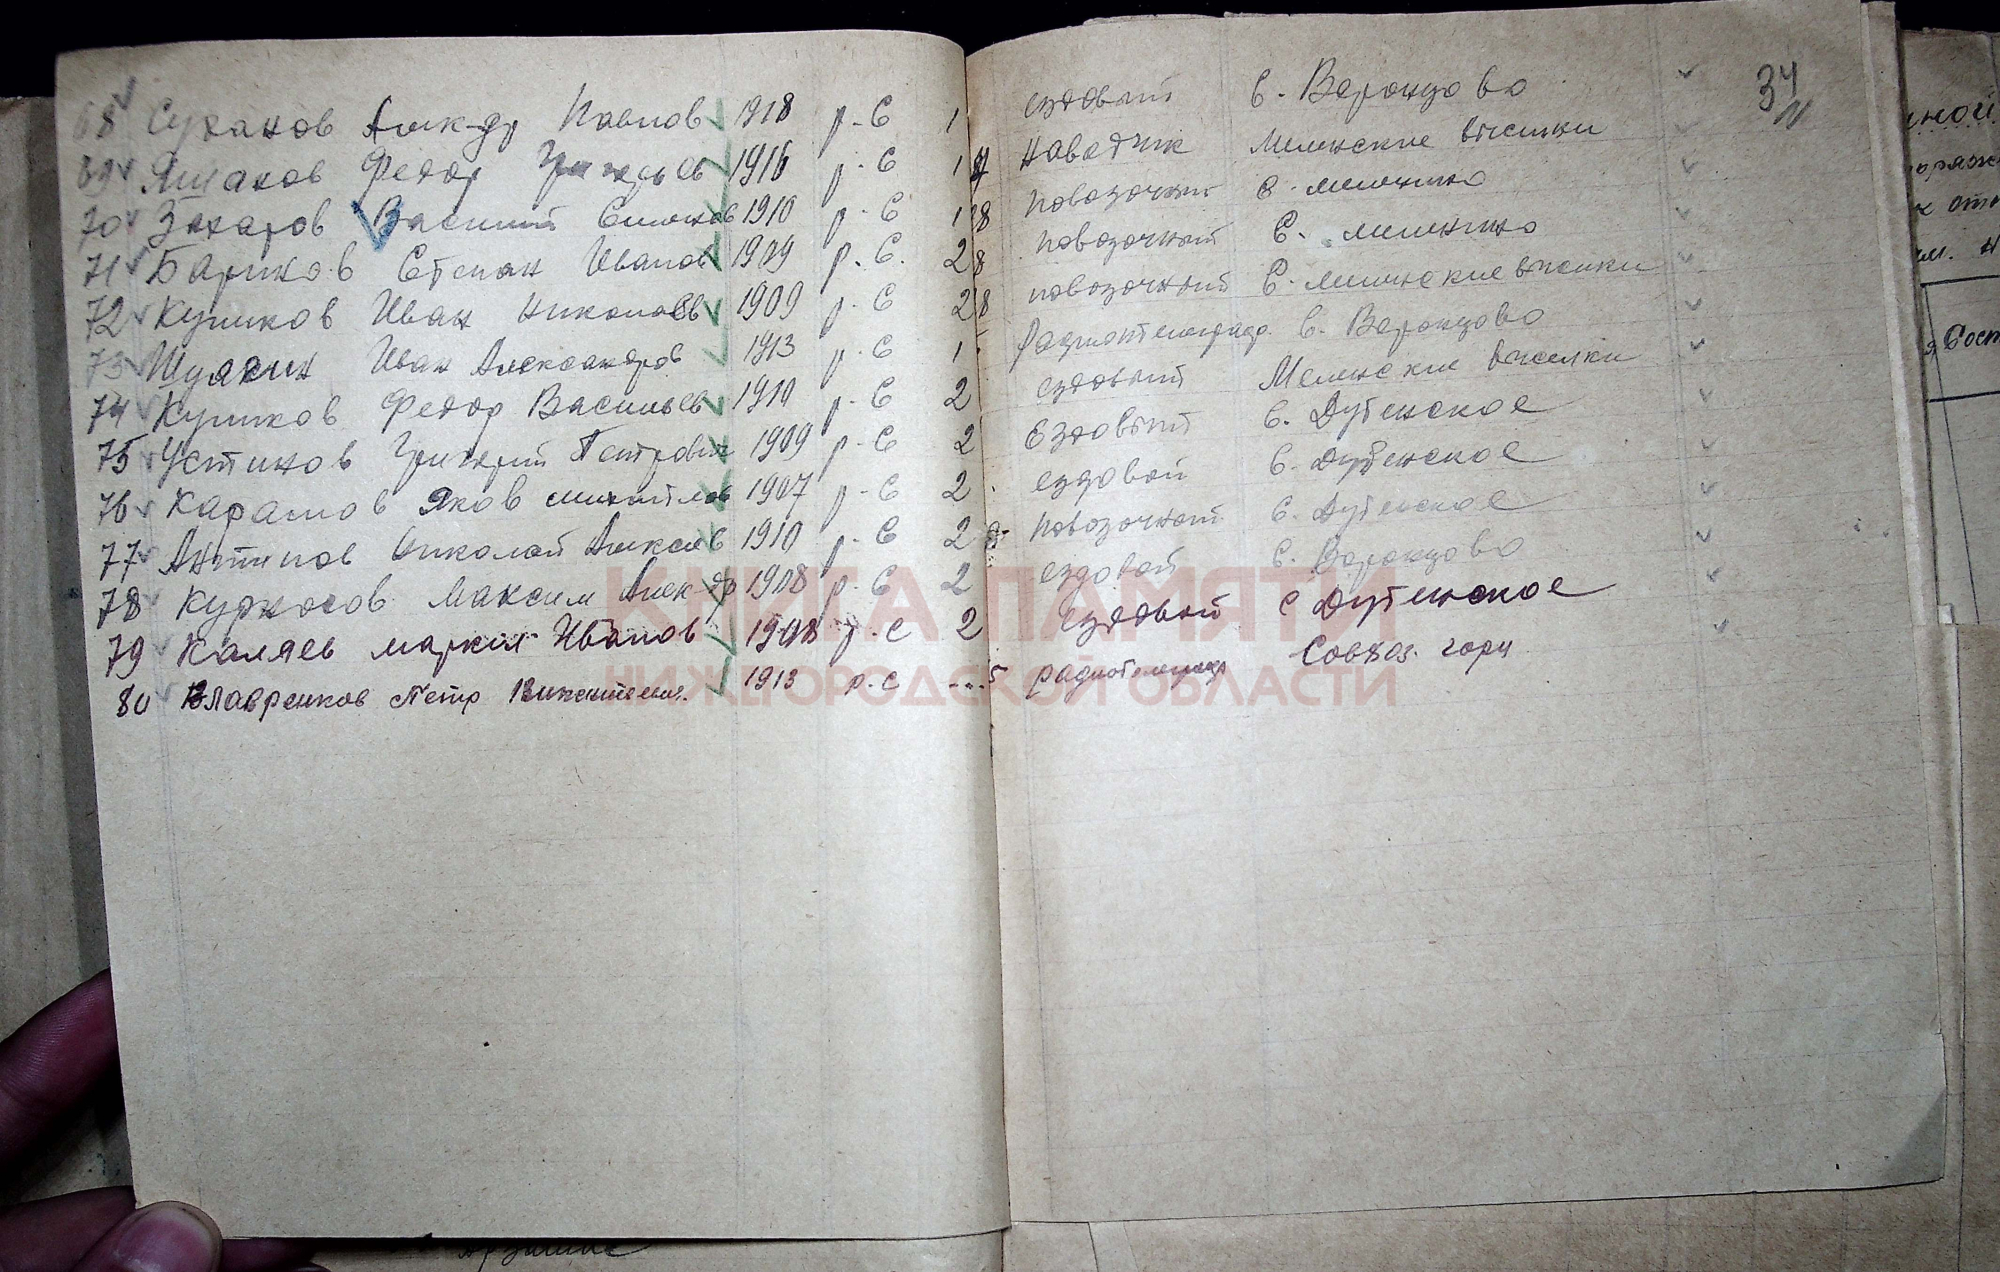 34
68 Суханов Алек-др Павлов 1918 р-С 1 ездовый с. Воронцово
69 Яшанов Федор 1916 р-С 1 наводчик Мелинские выселки
70 Захаров Василий Семенов 1910 р-С 1 8 повозочный с. Мелинино
71 Баринов Степан Иванов 1909 р.С. 2 8 повозочный С. Мелинино
72 Куликов Иван Николаев 1909 р-С 2 8 повозочный С. Мелинские выселки
73 Шулякин Иван Александров 1913 р-С 1 с. Воронцово
74 Куликов Федор Васильев 1910 р-С 2 ездовый Мелинские выселки
75 Устинов Григорий Петрович 1909 р-С 2 Ездовый с. Дубенское
76 Карамов Яков Михайлов 1907 р-С 2 ездовой с. Дубенское
77 Антипов Николай Алексеев 1910 р-С 2 повозочный с. Дубенское
78 Курносов Максим Алек-др 1908 р-С 2 ездовой с. Воронцово
79 Каляев Маркел Иванов 1908 р-с 2 ездовый с Дубенское
80 Лавренков Петр 1913 р.с 5 Совхоз. горц
КНИГА ПАМЯТИ
НИЖЕГОРОДСКОЙ ОБЛАСТИ